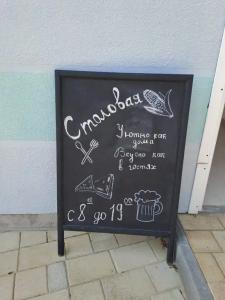 Столовая
Уютно как
дома
Вкусно как
в гостях
с 8 00 до 19 00